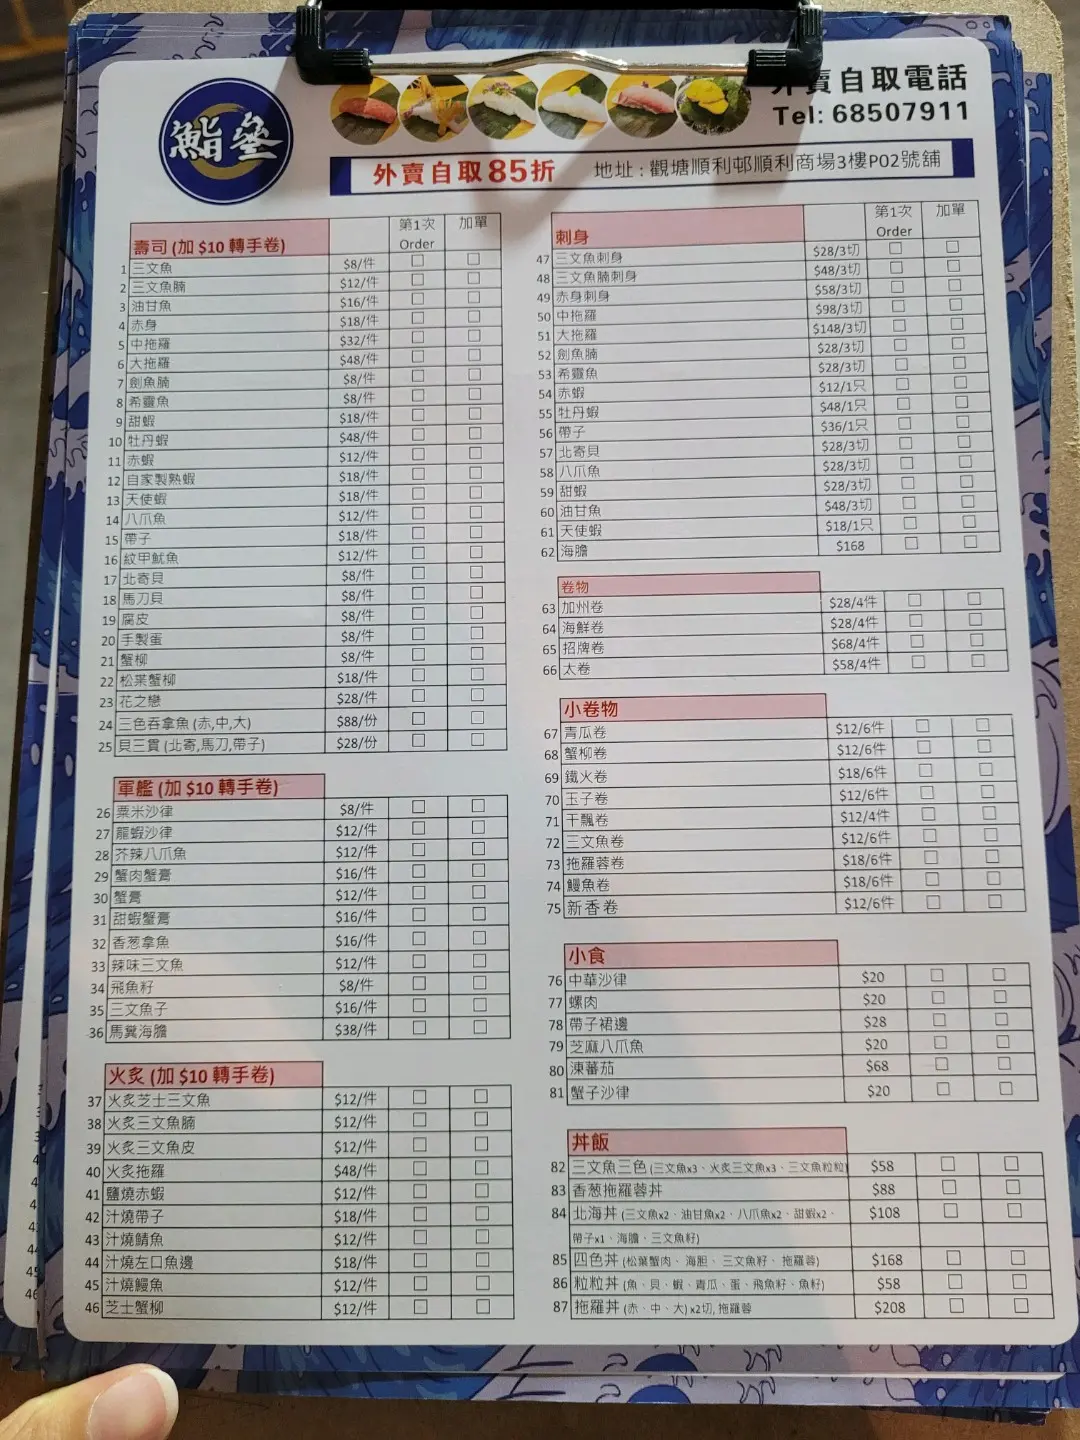 鮨垒
外賣自取電話
Tel: 68507911
外賣自取85折
地址 : 觀塘順利邨順利商場3樓P02號舖
壽司 (加 $10 轉手卷) 第1次 Order 加單
1 三文魚 $8/件
2 三文魚腩 $12/件
3 油甘魚 $16/件
4 赤身 $18/件
5 中拖羅 $32/件
6 大拖羅 $48/件
7 劍魚腩 $8/件
8 希靈魚 $8/件
9 甜蝦 $18/件
10 牡丹蝦 $48/件
11 赤蝦 $12/件
12 自家製熟蝦 $18/件
13 天使蝦 $18/件
14 八爪魚 $12/件
15 帶子 $18/件
16 紋甲魷魚 $12/件
17 北寄貝 $8/件
18 馬刀貝 $8/件
19 腐皮 $8/件
20 手製蛋 $8/件
21 蟹柳 $8/件
22 松葉蟹柳 $18/件
23 花之戀 $28/件
24 三色吞拿魚 (赤,中,大) $88/份
25 貝三貫 (北寄,馬刀,帶子) $28/份
軍艦 (加 $10 轉手卷)
26 粟米沙律 $8/件
27 龍蝦沙律 $12/件
28 芥辣八爪魚 $12/件
29 蟹肉蟹膏 $16/件
30 蟹膏 $12/件
31 甜蝦蟹膏 $16/件
32 香葱拿魚 $16/件
33 辣味三文魚 $12/件
34 飛魚籽 $8/件
35 三文魚子 $16/件
36 馬糞海膽 $38/件
火炙 (加 $10 轉手卷)
37 火炙芝士三文魚 $12/件
38 火炙三文魚腩 $12/件
39 火炙三文魚皮 $12/件
40 火炙拖羅 $48/件
41 鹽燒赤蝦 $12/件
42 汁燒帶子 $18/件
43 汁燒鯖魚 $12/件
44 汁燒左口魚邊 $18/件
45 汁燒鰻魚 $12/件
46 芝士蟹柳 $12/件
刺身 第1次 Order 加單
47 三文魚刺身 $28/3切
48 三文魚腩刺身 $48/3切
49 赤身刺身 $58/3切
50 中拖羅 $98/3切
51 大拖羅 $148/3切
52 劍魚腩 $28/3切
53 希靈魚 $28/3切
54 赤蝦 $12/1只
55 牡丹蝦 $48/1只
56 帶子 $36/1只
57 北寄貝 $28/3切
58 八爪魚 $28/3切
59 甜蝦 $28/3切
60 油甘魚 $48/3切
61 天使蝦 $18/1只
62 海膽 $168
卷物
63 加州卷 $28/4件
64 海鮮卷 $28/4件
65 招牌卷 $68/4件
66 太卷 $58/4件
小卷物
67 青瓜卷 $12/6件
68 蟹柳卷 $12/6件
69 鐵火卷 $18/6件
70 玉子卷 $12/6件
71 干瓢卷 $12/4件
72 三文魚卷 $12/6件
73 拖羅蓉卷 $18/6件
74 鰻魚卷 $18/6件
75 新香卷 $12/6件
小食
76 中華沙律 $20
77 螺肉 $20
78 帶子裙邊 $28
79 芝麻八爪魚 $20
80 涷蕃茄 $68
81 蟹子沙律 $20
丼飯
82 三文魚三色 (三文魚x3、火炙三文魚x3、三文魚粒粒) $58
83 香葱拖羅蓉丼 $88
84 北海丼 (三文魚x2、油甘魚x2、八爪魚x2、甜蝦x2、 $108
帶子x1、海膽、三文魚籽)
85 四色丼 (松葉蟹肉、海胆、三文魚籽、拖羅蓉) $168
86 粒粒丼 (魚、貝、蝦、青瓜、蛋、飛魚籽、魚籽) $58
87 拖羅丼 (赤、中、大) x2切, 拖羅蓉 $208